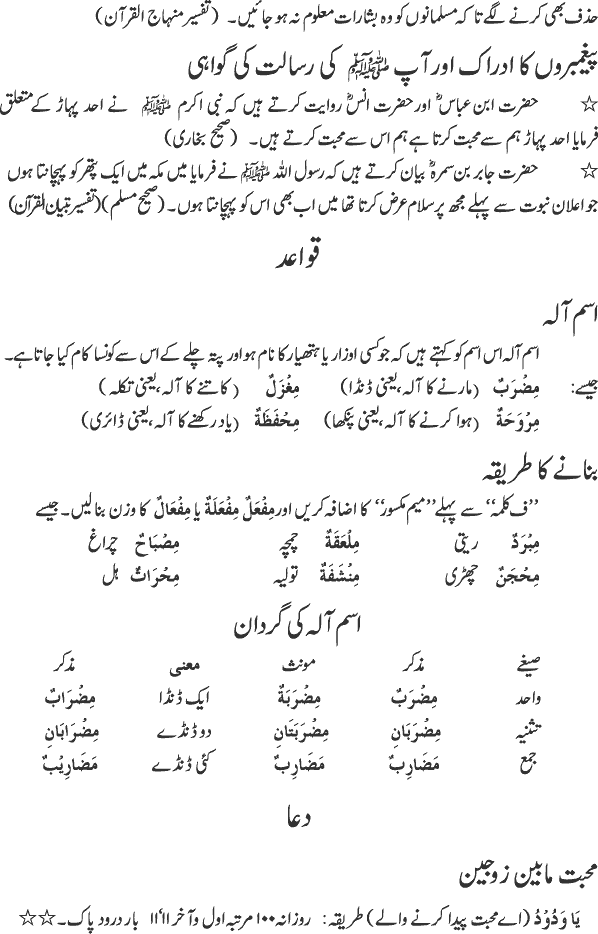 حذف بھی کرنے لگے تاکہ مسلمانوں کو وہ بشارات معلوم نہ ہو جائیں۔ (تفسیر منہاج القرآن)
پیغمبروں کا ادراک اور آپ ﷺ کی رسالت کی گواہی
☆ حضرت ابن عباسؓ اور حضرت انسؓ روایت کرتے ہیں کہ نبی اکرم ﷺ نے احد پہاڑ کے متعلق
فرمایا احد پہاڑ ہم سے محبت کرتا ہے ہم اس سے محبت کرتے ہیں۔ (صحیح بخاری)
☆ حضرت جابر بن سمرہؓ بیان کرتے ہیں کہ رسول اللہ ﷺ نے فرمایا میں مکہ میں ایک پتھر کو پہچانتا ہوں
جو اعلان نبوت سے پہلے مجھ پر سلام عرض کرتا تھا میں اب بھی اس کو پہچانتا ہوں۔ (صحیح مسلم) (تفسیر تبیان القرآن)
قواعد
اسم آلہ
اسم آلہ اس اسم کو کہتے ہیں کہ جو کسی اوزار یا ہتھیار کا نام ہو اور پتہ چلے کے اس سے کونسا کام کیا جاتا ہے۔
جیسے: مِضْرَبٌ (مارنے کا آلہ، یعنی ڈنڈا) مِغْزَلٌ (کاتنے کا آلہ، یعنی تکلہ)
مِرْوَحَةٌ (ہوا کرنے کا آلہ، یعنی پنکھا) مِحْفَظَةٌ (یاد رکھنے کا آلہ، یعنی ڈائری)
بنانے کا طریقہ
”ف کلمہ“ سے پہلے ”میم مکسور“ کا اضافہ کریں اور مِفْعَلٌ مِفْعَلَةٌ یا مِفْعَالٌ کا وزن بنا لیں۔ جیسے
مِبْرَدٌ ریتی مِلْعَقَةٌ چمچہ مِصْبَاحٌ چراغ
مِحْجَنٌ چھڑی مِنْشَفَةٌ تولیہ مِحْرَاثٌ ہل
اسم آلہ کی گردان
صیغے مذکر مونث معنی مذکر
واحد مِضْرَبٌ مِضْرَبَةٌ ایک ڈنڈا مِضْرَابٌ
تثنیہ مِضْرَبَانِ مِضْرَبَتَانِ دو ڈنڈے مِضْرَابَانِ
جمع مَضَارِبٌ مَضَارِبٌ کئی ڈنڈے مَضَارِیْبٌ
دعا
محبت مابین زوجین
یَا وَدُوْدُ (اے محبت پیدا کرنے والے) طریقہ: روزانہ ۱۰۰ مرتبہ اول و آخر ۱۱،۱۱ بار درود پاک۔ ☆☆